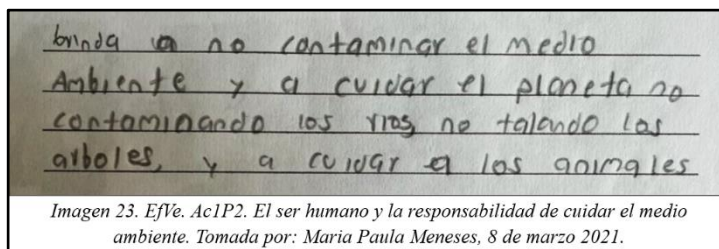 brinda a no contaminar el medio
Ambiente y a cuidar el planeta no
contaminando los rios, no talando los
arboles, y a cuidar a los animales
Imagen 23. EfVe. Ac1P2. El ser humano y la responsabilidad de cuidar el medio
ambiente. Tomada por: Maria Paula Meneses, 8 de marzo 2021.